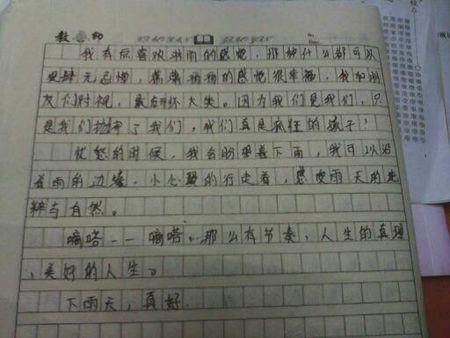 我有点喜欢淋雨的感觉，那种什么都可以
肆无忌惮，痛痛的感觉很幸福，我和朋
友们对视，哈大笑。因为我们是我们，只
是我们了我们，我们真是疯狂的孩子！
忧愁的时候，我会盼望着下雨，我可以沿
着雨的边缘，小心翼的行走着，感受雨天的
与自然。
嘀嗒——嘀嗒，那么有节奏，人生的真理
，美好的人生。
下雨天，真好.